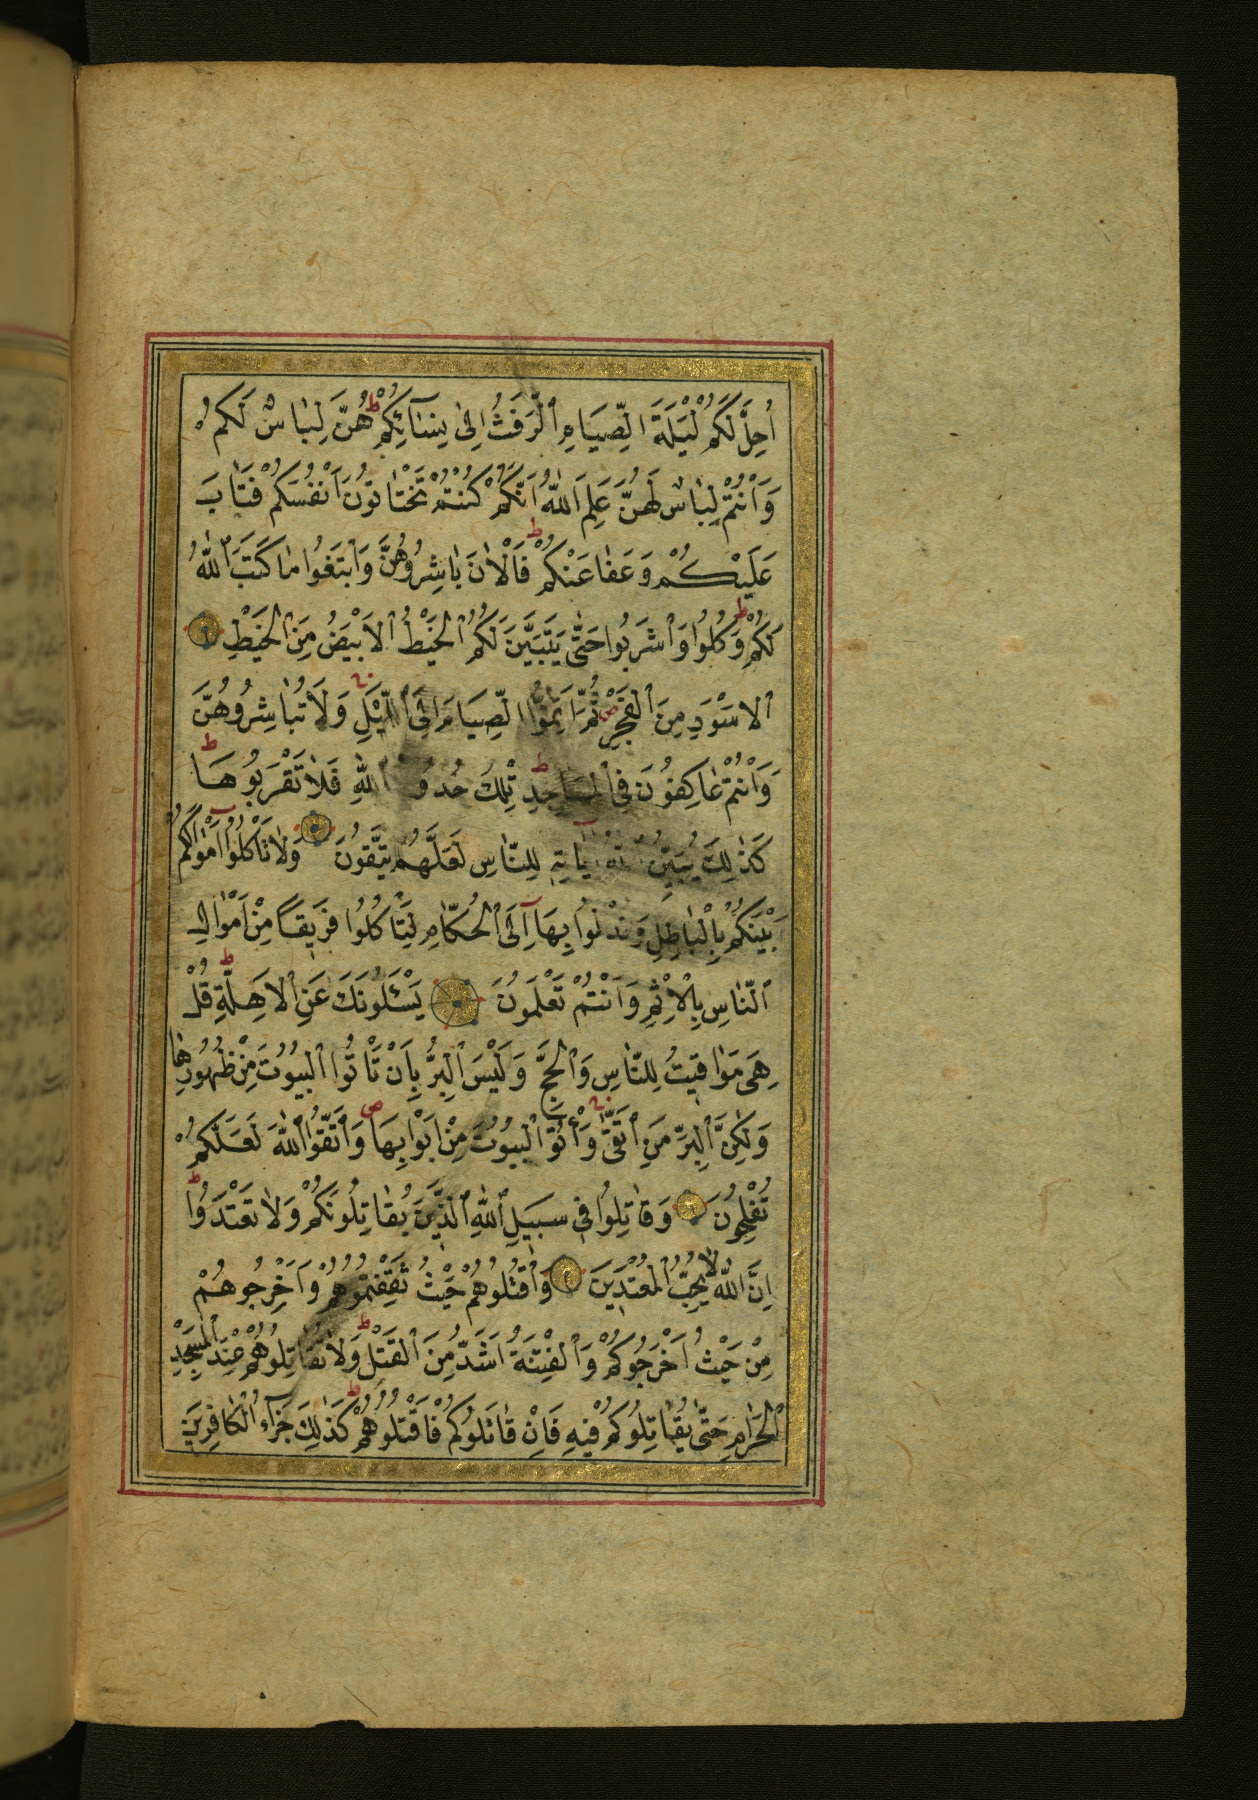 اُحِلَّ لَكُمْ لَيْلَةَ الصِّيَامِ الرَّفَثُ اِلٰى نِسَآئِكُمْ ط هُنَّ لِبَاسٌ لَكُمْ
وَاَنْتُمْ لِبَاسٌ لَهُنَّ عَلِمَ اللّٰهُ اَنَّكُمْ كُنْتُمْ تَخْتَانُونَ اَنْفُسَكُمْ فَتَابَ
عَلَيْكُمْ وَعَفَا عَنْكُمْ ط فَالْاٰنَ بَاشِرُوهُنَّ وَابْتَغُوا مَا كَتَبَ اللّٰهُ
لَكُمْ ط وَكُلُوا وَاشْرَبُوا حَتّٰى يَتَبَيَّنَ لَكُمُ الْخَيْطُ الْاَبْيَضُ مِنَ الْخَيْطِ
الْاَسْوَدِ مِنَ الْفَجْرِ ص ثُمَّ اَتِمُّوا الصِّيَامَ اِلَى الَّيْلِ وَلَا تُبَاشِرُوهُنَّ
وَاَنْتُمْ عَاكِفُونَ فِى الْمَسَاجِدِ ط تِلْكَ حُدُو اللّٰهِ فَلَا تَقْرَبُوهَا ط
كَذٰلِكَ يُبَيِّنُ يَاتِهِ لِلنَّاسِ لَعَلَّهُمْ يَتَّقُونَ وَلَا تَاْكُلُوا اَمْوَالَكُمْ
بَيْنَكُمْ بِالْبَاطِلِ وَتُدْلُوا بِهَا اِلَى الْحُكَّامِ لِتَاْكُلُوا فَرِيقًا مِنْ اَمْوَالِ
النَّاسِ بِالْاِثْمِ وَاَنْتُمْ تَعْلَمُونَ يَسْـَٔلُونَكَ عَنِ الْاَهِلَّةِ ط قُلْ
هِىَ مَوَاقِيتُ لِلنَّاسِ وَالْحَجِّ وَلَيْسَ الْبِرُّ بِاَنْ تَاْتُوا الْبُيُوتَ مِنْ ظُهُورِهَا
وَلٰكِنَّ الْبِرَّ مَنِ اتَّقٰى وَاْتُوا الْبُيُوتَ مِنْ اَبْوَابِهَا ص وَاتَّقُوا اللّٰهَ لَعَلَّكُمْ
تُفْلِحُونَ وَقَاتِلُوا فِى سَبِيلِ اللّٰهِ الَّذِينَ يُقَاتِلُونَكُمْ وَلَا تَعْتَدُوا ط
اِنَّ اللّٰهَ لَا يُحِبُّ الْمُعْتَدِينَ وَاقْتُلُوهُمْ حَيْثُ ثَقِفْتُمُوهُمْ وَاَخْرِجُوهُمْ
مِنْ حَيْثُ اَخْرَجُوكُمْ وَالْفِتْنَةُ اَشَدُّ مِنَ الْقَتْلِ ط وَلَا تُقَاتِلُوهُمْ عِنْدَ الْمَسْجِدِ
الْحَرَامِ حَتّٰى يُقَاتِلُوكُمْ فِيهِ فَاِنْ قَاتَلُوكُمْ فَاقْتُلُوهُمْ ط كَذٰلِكَ جَزَآءُ الْكَافِرِينَ